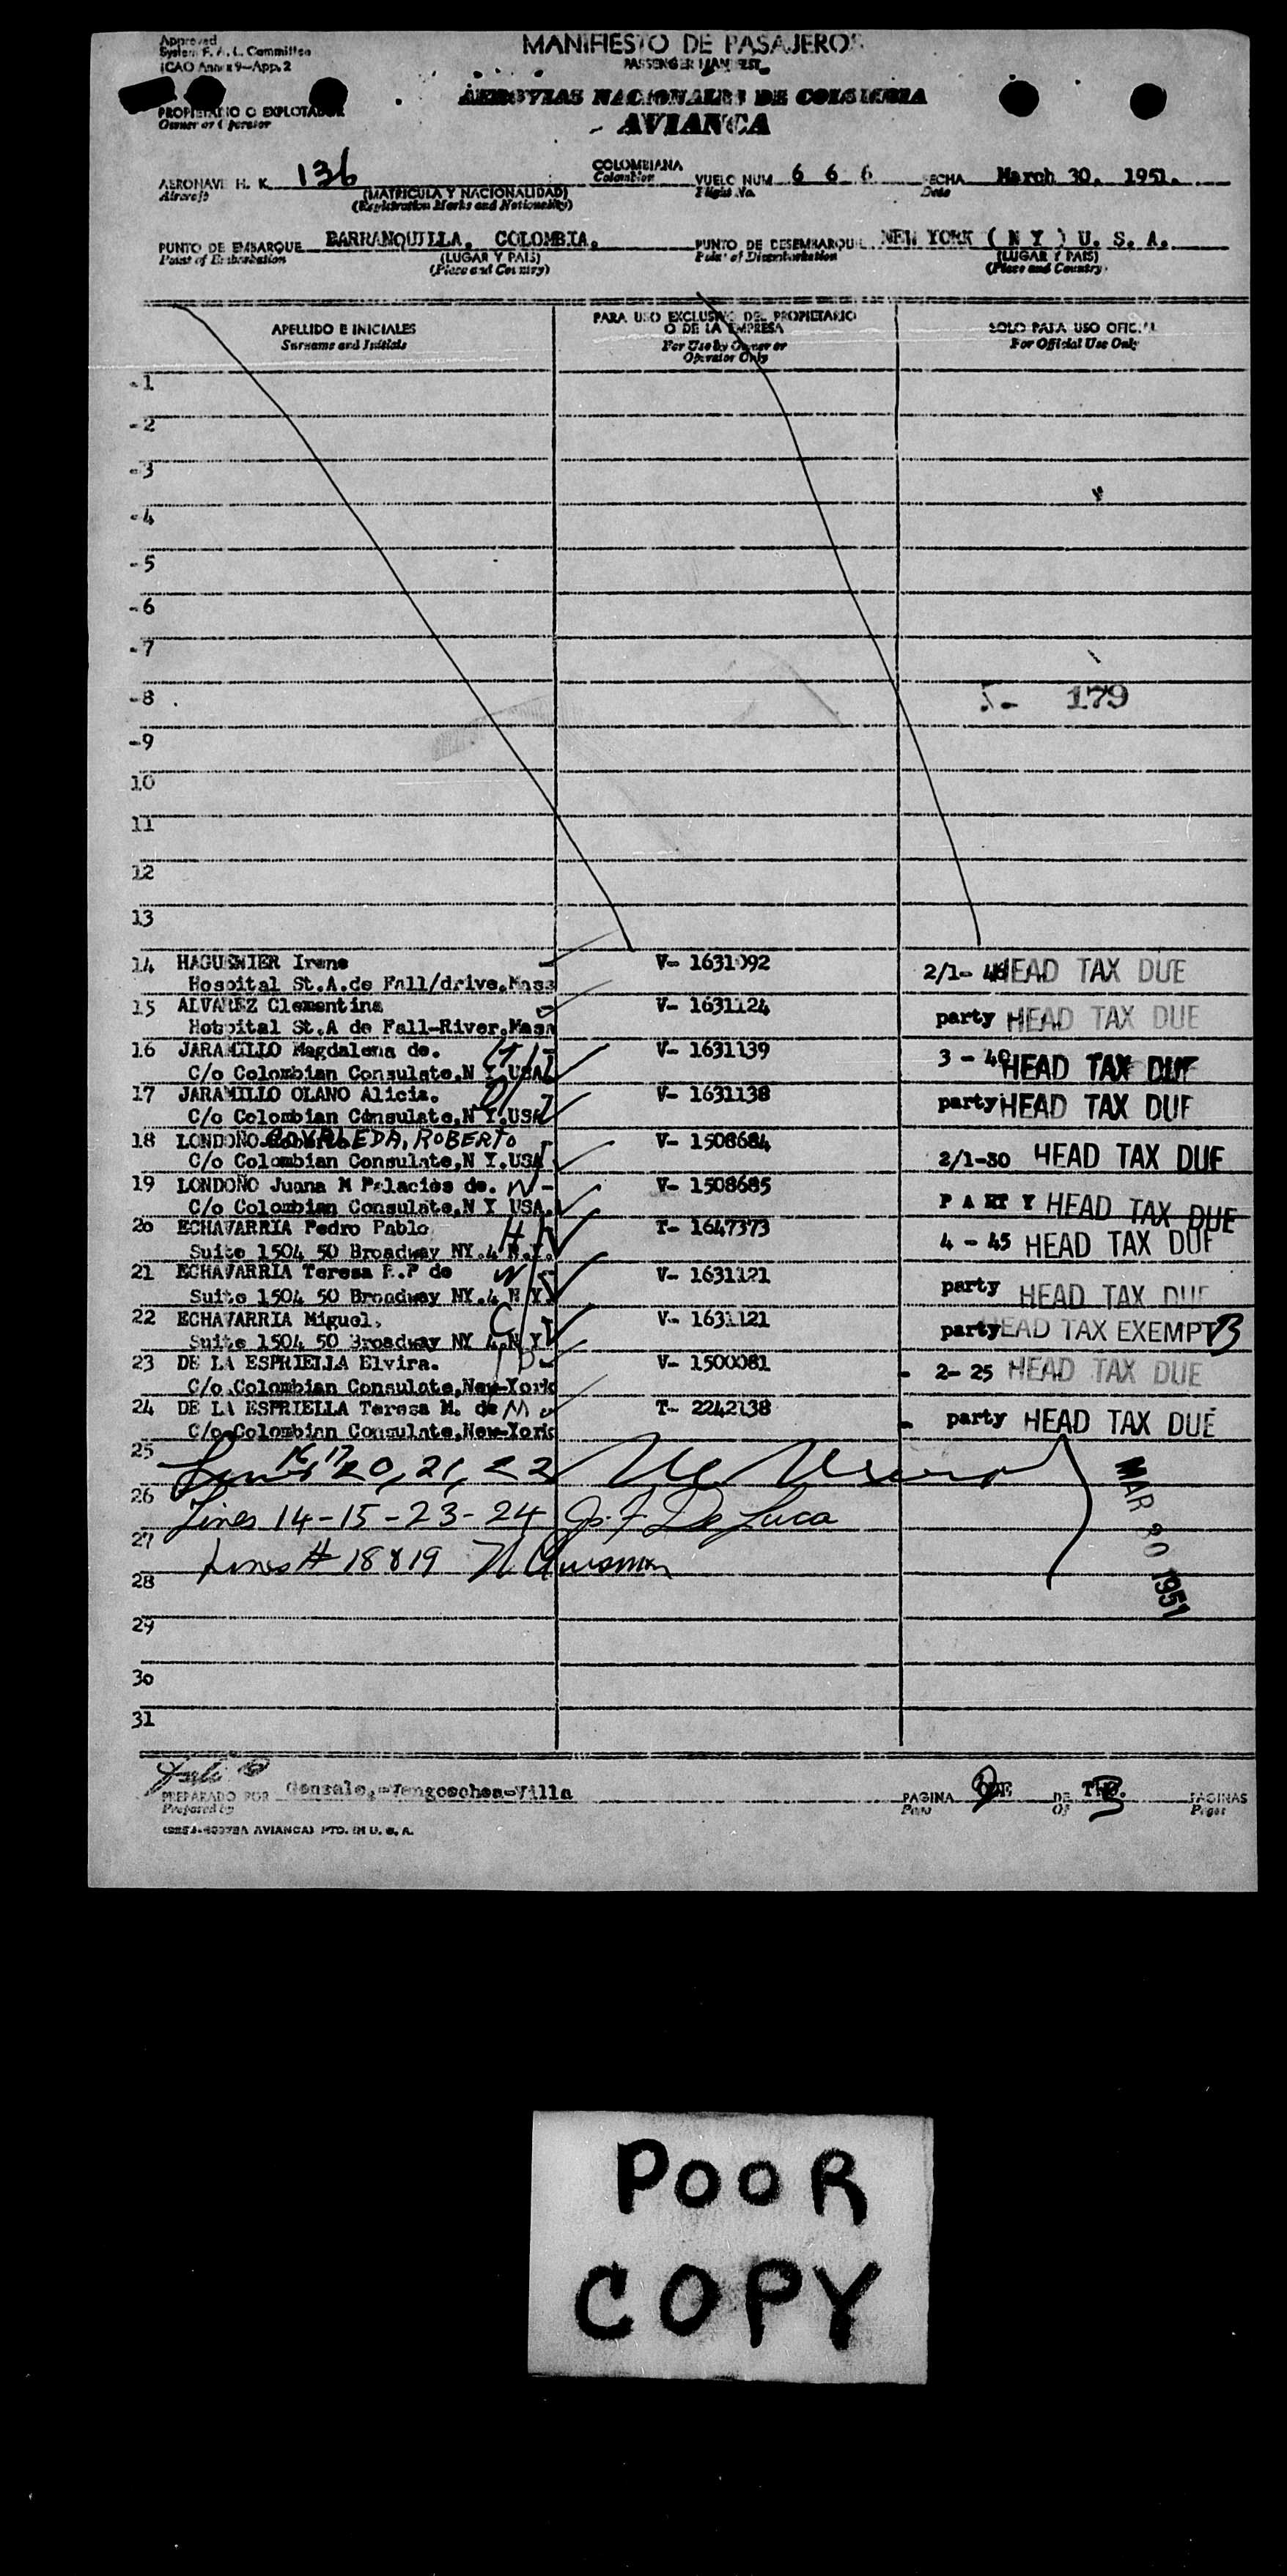 Approved
System F. A. L. Committee
ICAO Annex 9-App. 2
MANIFIESTO DE PASAJEROS
PASSENGER MANIFEST
AEROVIAS NACIONALES DE COLOMBIA
AVIANCA
PROPIETARIO O EXPLOTADOR
Owner or Operator
AERONAVE H. K. 136 COLOMBIANA VUELO NUM 6 6 6 FECHA March 30, 1951.
Aircraft (MATRICULA Y NACIONALIDAD) Colombian Flight No. Date
(Registration Marks and Nationality)
PUNTO DE EMBARQUE BARRANQUILLA, COLOMBIA. PUNTO DE DESEMBARQUE NEW YORK ( N Y ) U. S. A.
Point of Embarkation (LUGAR Y PAIS) Point of Disembarkation (LUGAR Y PAIS)
(Place and Country) (Place and Country)
APELLIDO E INICIALES PARA USO EXCLUSIVO DEL PROPIETARIO SOLO PARA USO OFICIAL
Surname and Initials O DE LA EMPRESA For Official Use Only
For Use by Owner or
Operator Only
-1
-2
-3
-4
-5
-6
-7
-8 179
-9
10
11
12
13
14 HAGUENIER Irene V- 1631092 2/1- HEAD TAX DUE
Hospital St.A.de Fall/drive.Mass
15 ALVAREZ Clementina V- 1631124 party HEAD TAX DUE
Hotpital St.A de Fall-River.Mass
16 JARAMILLO Magdalena de. V- 1631139 3 - 40 HEAD TAX DUE
C/o Colombian Consulate,N Y.USA
17 JARAMILLO OLANO Alicia. V- 1631138 party HEAD TAX DUE
C/o Colombian Consulate,N Y.USA
18 LONDOÑO ROBERTO V- 1508684 2/1-30 HEAD TAX DUE
C/o Colombian Consulate,N Y.USA
19 LONDOÑO Juana M Palacios de. W V- 1508685 P A RT Y HEAD TAX DUE
C/o Colombian Consulate,N Y USA.
20 ECHAVARRIA Pedro Pablo H T- 1647373 4 - 45 HEAD TAX DUE
Suite 1504 50 Broadway NY.4 N.Y.
21 ECHAVARRIA Teresa R.P de W V- 1631121 party HEAD TAX DUE
Suite 1504 50 Broadway NY.4 N Y.
22 ECHAVARRIA Miguel. C V- 1631121 party HEAD TAX EXEMPT B
Suite 1504 50 Broadway NY 4.N Y
23 DE LA ESPRIELLA Elvira. V- 1500081 - 2- 25 HEAD TAX DUE
C/o Colombian Consulate,New-York
24 DE LA ESPRIELLA Teresa M. de M T- 2242138 - party HEAD TAX DUE
C/o Colombian Consulate,New-York
25 Lines 16, 17, 20, 21, 22
26
Lines 14-15-23-24 De Luca
27
Lines # 18 & 19
28
MAR 30 1951
29
30
31
PREPARADO POR Gonzalo,-Vengoechea-Villa PAGINA 2 DE 3 PAGINAS
Prepared by Page Of Pages
AVIANCA) PTD. IN U. S. A.
POOR
COPY